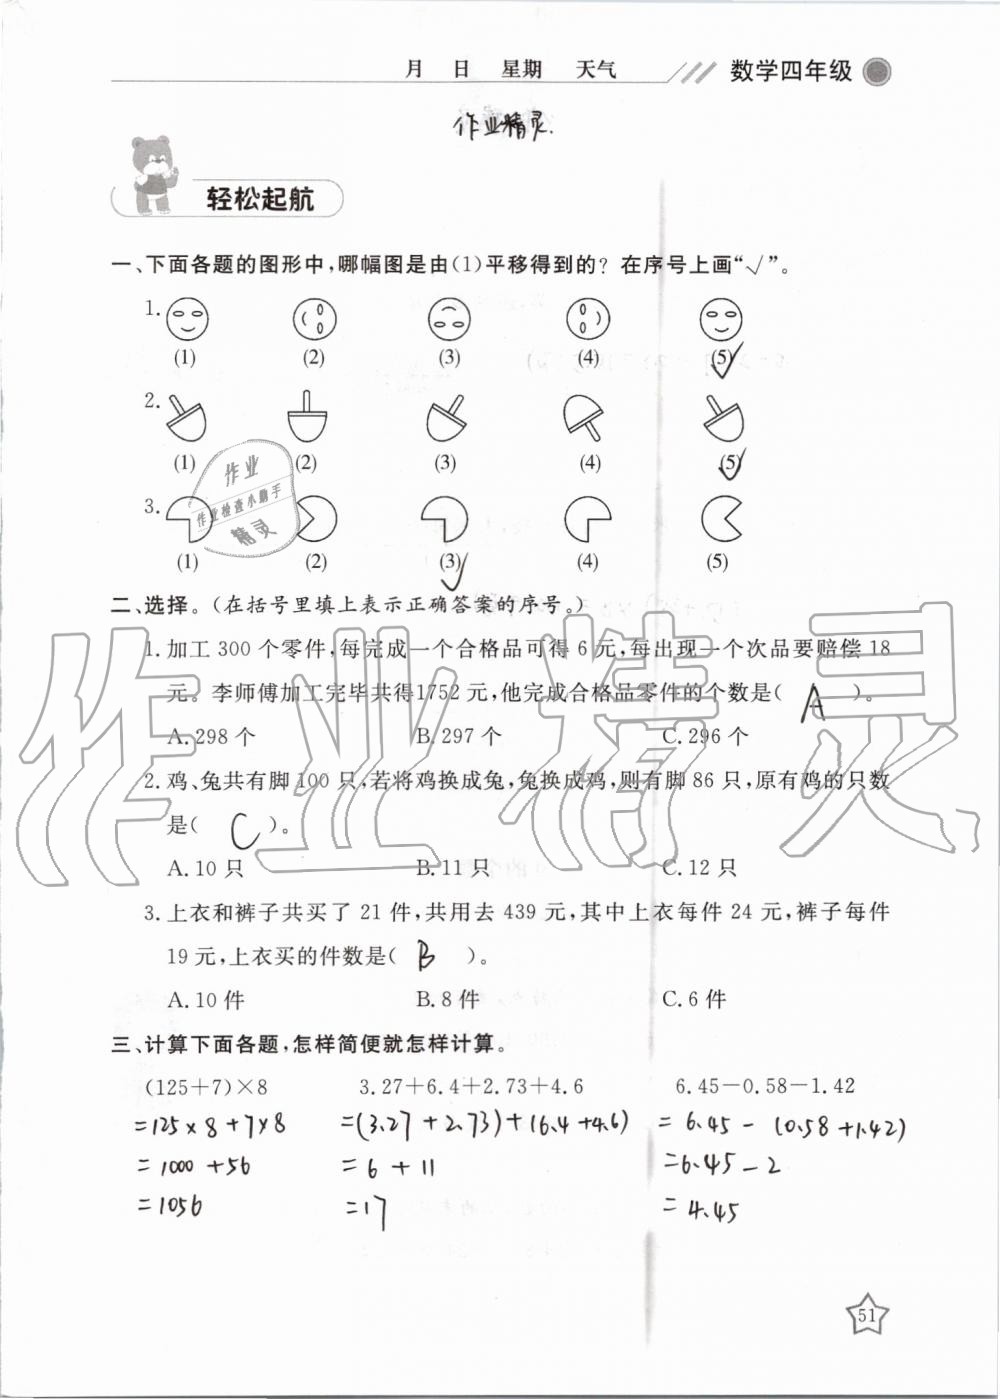 月 日 星期 天气 数学四年级
作业精灵.
轻松起航
一、下面各题的图形中,哪幅图是由(1)平移得到的?在序号上画“√”。
1.
(1) (2) (3) (4) (5)✓
2.
(1) (2) (3) (4) (5)✓
作业
作业检查小助手
精灵
3.
(1) (2) (3)✓ (4) (5)
二、选择。(在括号里填上表示正确答案的序号。)
1.加工300个零件,每完成一个合格品可得6元,每出现一个次品要赔偿18
元。李师傅加工完毕共得1752元,他完成合格品零件的个数是( A )。
A.298个 B.297个 C.296个
2.鸡、兔共有脚100只,若将鸡换成兔,兔换成鸡,则有脚86只,原有鸡的只数
是( C )。
A.10只 B.11只 C.12只
3.上衣和裤子共买了21件,共用去439元,其中上衣每件24元,裤子每件
19元,上衣买的件数是( B )。
A.10件 B.8件 C.6件
三、计算下面各题,怎样简便就怎样计算。
(125+7)×8 3.27+6.4+2.73+4.6 6.45-0.58-1.42
=125×8+7×8 =(3.27+2.73)+(6.4+4.6) =6.45-(0.58+1.42)
=1000+56 =6+11 =6.45-2
=1056 =17 =4.45
作业精灵
51